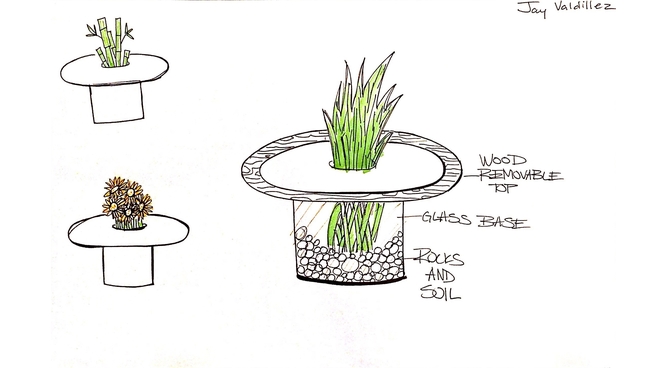 Jay Valdillez
WOOD
REMOVABLE
TOP
GLASS BASE
ROCKS
AND
SOIL